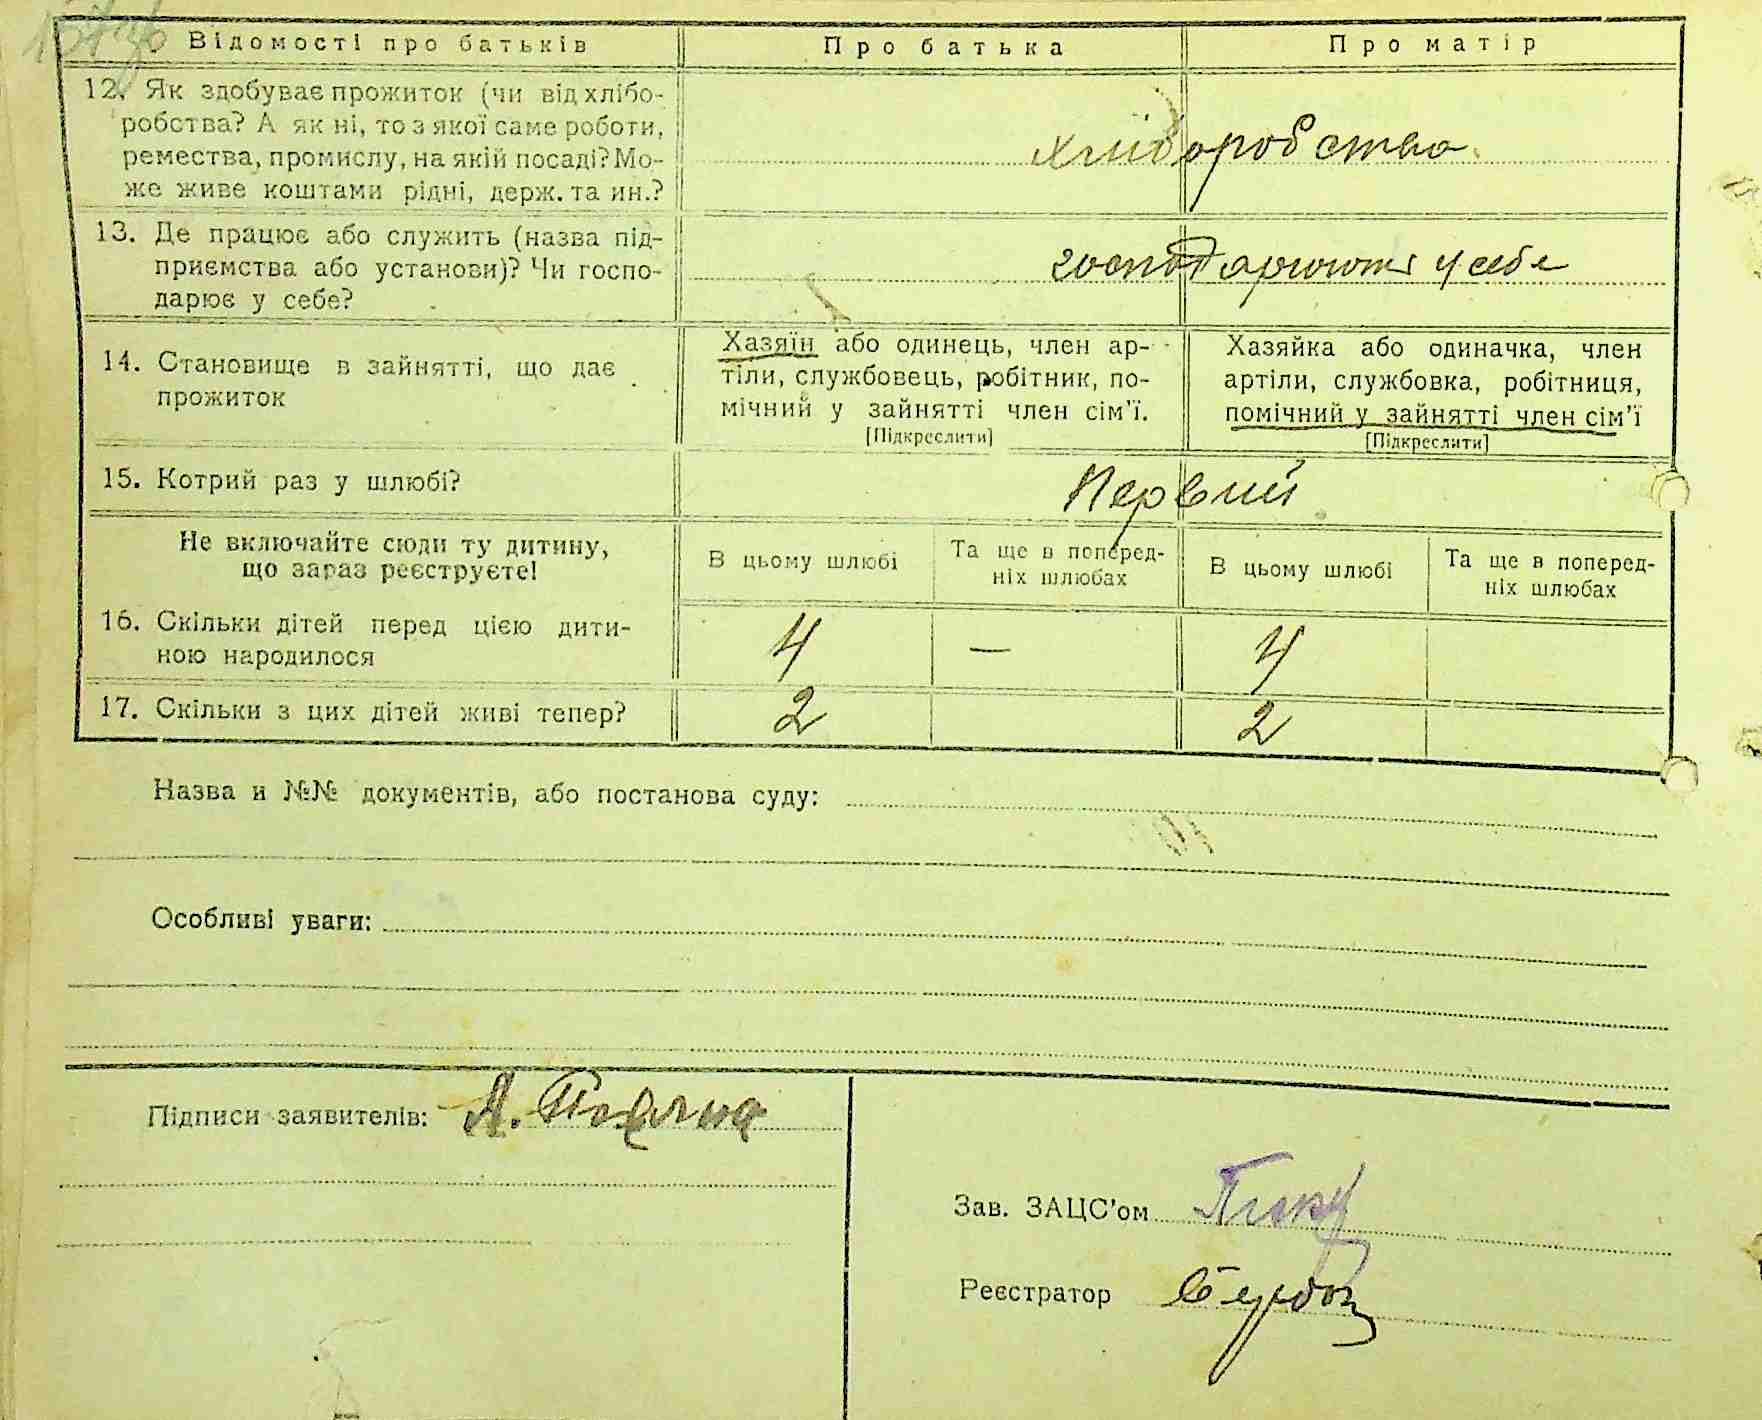 Відомості про батьків
Про батька
Про матір
12. Як здобуває прожиток (чи від хлібо-
робства? А як ні, то з якої саме роботи,
ремества, промислу, на якій посаді? Мо-
же живе коштами рідні, держ. та ин.?
хліборобство
13. Де працює або служить (назва під-
приємства або установи)? Чи госпо-
дарює у себе?
господарюють у себе
14. Становище в зайнятті, що дає
прожиток
Хазяїн або одинець, член ар-
тіли, службовець, робітник, по-
мічний у зайнятті член сім'ї.
[Підкреслити]
Хазяйка або одиначка, член
артіли, службовка, робітниця,
помічний у зайнятті член сім'ї
[Підкреслити]
15. Котрий раз у шлюбі?
Первий
Не включайте сюди ту дитину,
що зараз реєструєте!
В цьому шлюбі
Та ще в поперед-
ніх шлюбах
В цьому шлюбі
Та ще в поперед-
ніх шлюбах
16. Скільки дітей перед цією дити-
ною народилося
4 — 4
17. Скільки з цих дітей живі тепер?
2 2
Назва и №№ документів, або постанова суду:
Особливі уваги:
Підписи заявителів: А.
Зав. ЗАЦС'ом
Реєстратор